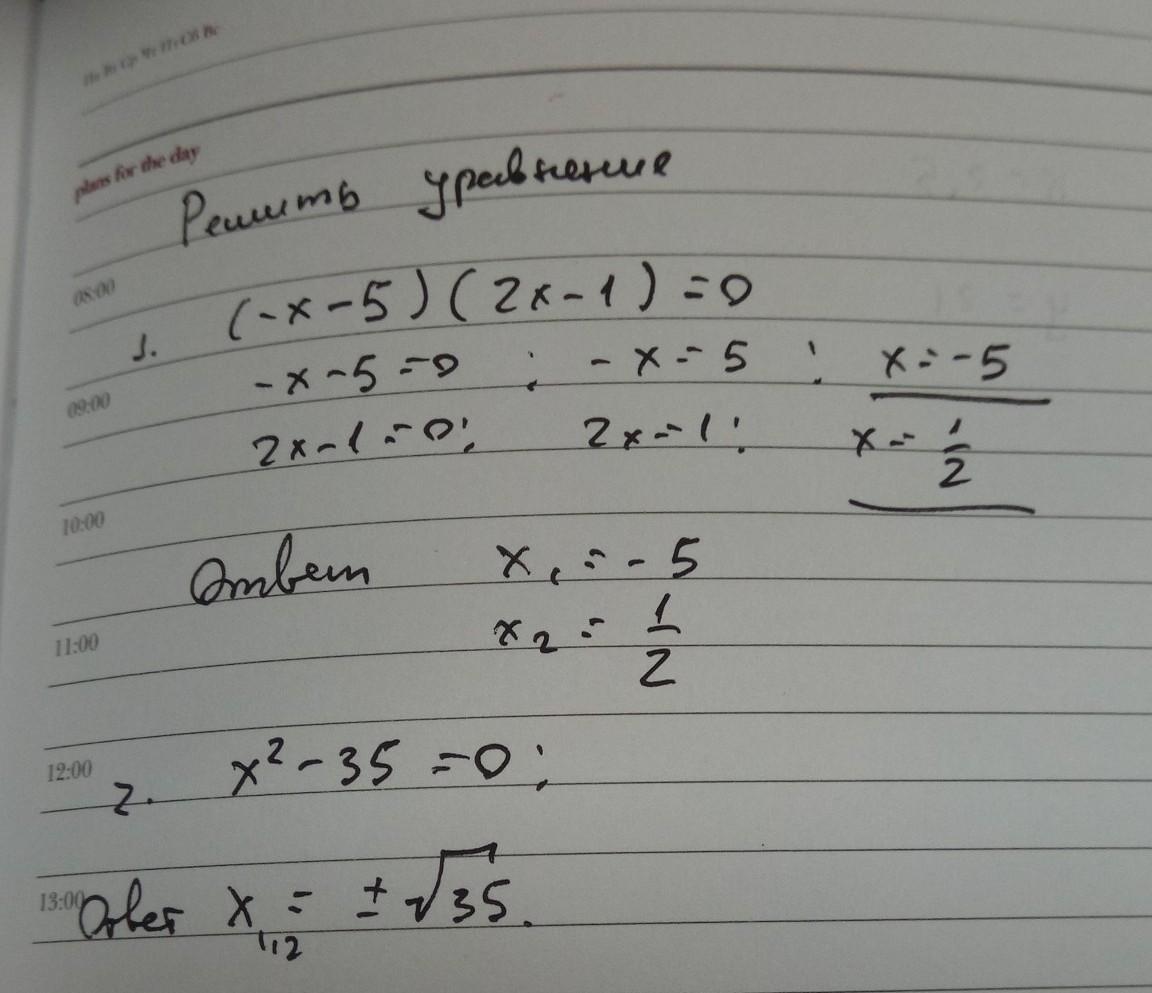 Пн Вт Ср Чт Пт Сб Вс
plans for the day
Решить уравнение
08:00
1. (-x-5)(2x-1)=0
-x-5=0 ; -x=5 ; x=-5
09:00
2x-1=0; 2x=1; x=1/2
10:00
Ответ x₁=-5
11:00
x₂=1/2
12:00
2. x²-35=0;
13:00
Ответ x₁,₂=±√35.